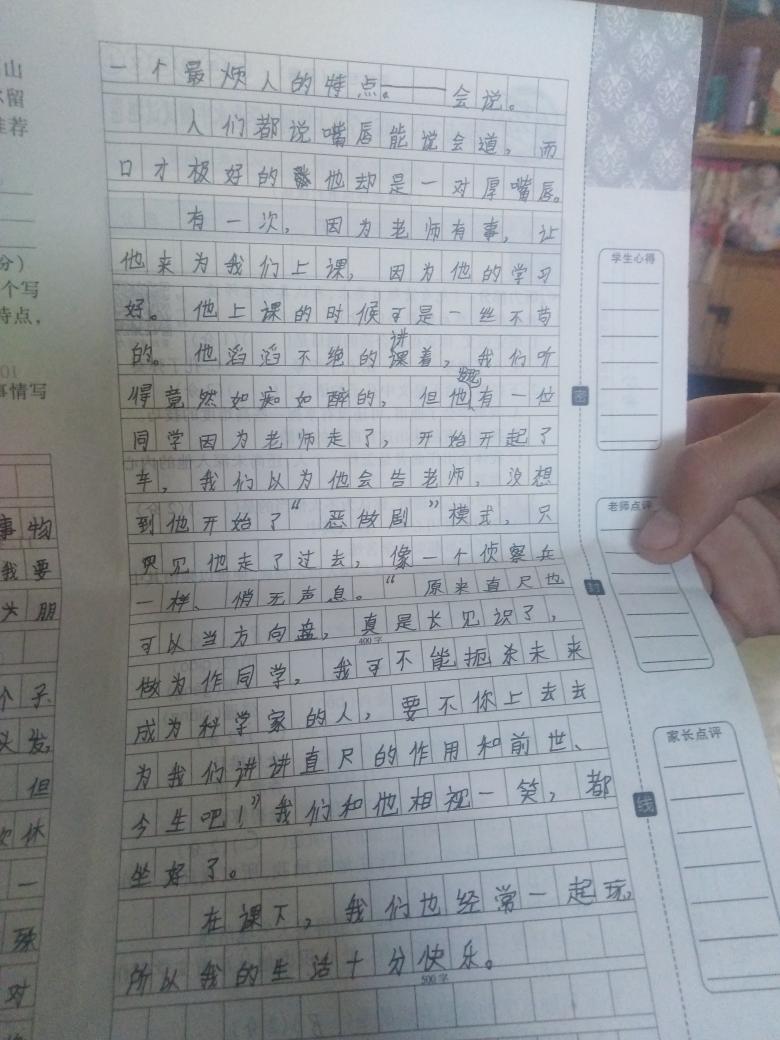 一个最烦人的特点。——会说。
人们都说嘴唇能说会道，而
口才极好的他却是一对厚嘴唇。
有一次，因为老师有事，让
他来为我们上课，因为他的学习
好。他上课的时候可是一丝不苟
的。他滔滔不绝的讲着，我们听
得竟然如痴如醉的，但他有一位
同学因为老师走了，开始开起了
车，我们以为他会告老师，没想
到他开始了“恶做剧”模式，只
见他走了过去，像一个侦察兵
一样、悄无声息。“原来直尺也
可以当方向盘，真是长见识了，
400字
做为作同学，我可不能扼杀未来
成为科学家的人，要不你上去去
为我们讲讲直尺的作用和前世、
今生吧！”我们和他相视一笑，都
坐好了。
在课下，我们也经常一起玩，
所以我的生活十分快乐。
500字
学生心得
老师点评
家长点评
密
封
线
山
留
推荐
分）
个写
特点，
事情写
事物
我要
头朋
个子
头发，
但
次体
一
殊
对